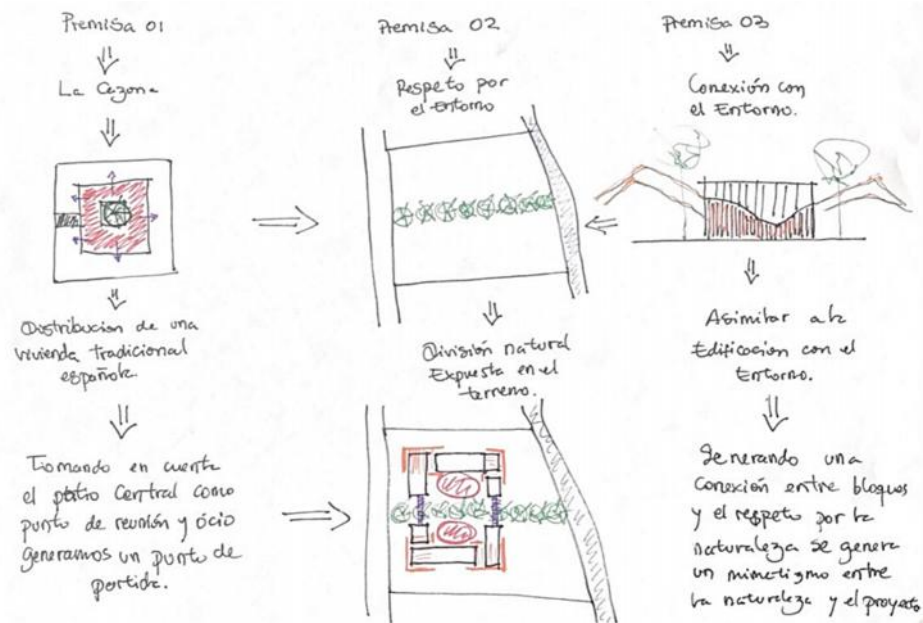 Premisa 01
La Cazona
Distribucion de una
vivienda tradicional
española.
Tomando en cuenta
el patio Central como
punto de reunión y ócio
generamos un punto de
partida.
Premisa 02
Respeto por
el Entorno
División natural
Expuesta en el
terreno.
Premisa 03
Conexión con
el Entorno.
Asimilar a la
Edificacion con el
Entorno.
Generando una
Conexión entre bloques
y el respeto por la
naturaleza se genera
un mimetismo entre
la naturaleza y el proyecto